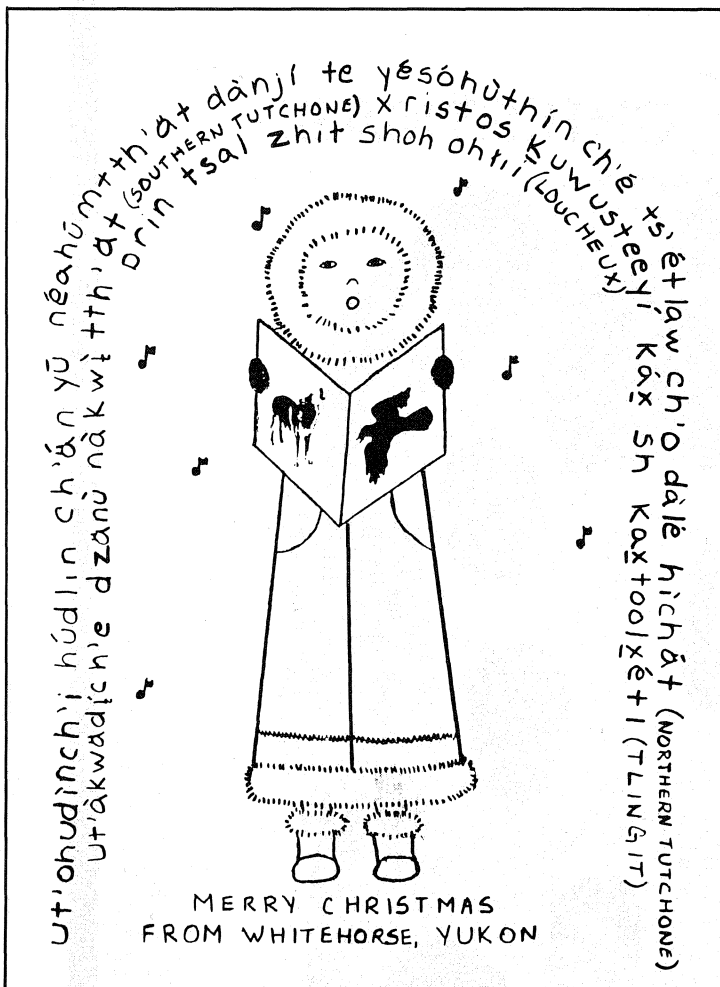 Ut'ohudinch'i húdlin ch'ăn yū néahúmtth'ăt dànjí te yésóhùthín ch'é ts'étláw ch'o dàlé hìchăt (NORTHERN TUTCHONE)
Ut'àkwadįch'e dzänù nàkwį̀tth'ät (SOUTHERN TUTCHONE) Xristos Ḵuwusteeyí káx̱ sh kax̱toolx̱étl (TLINGIT)
Drin tsal zhit shoh ohłıí (LOUCHEUX)
MERRY CHRISTMAS
FROM WHITEHORSE, YUKON